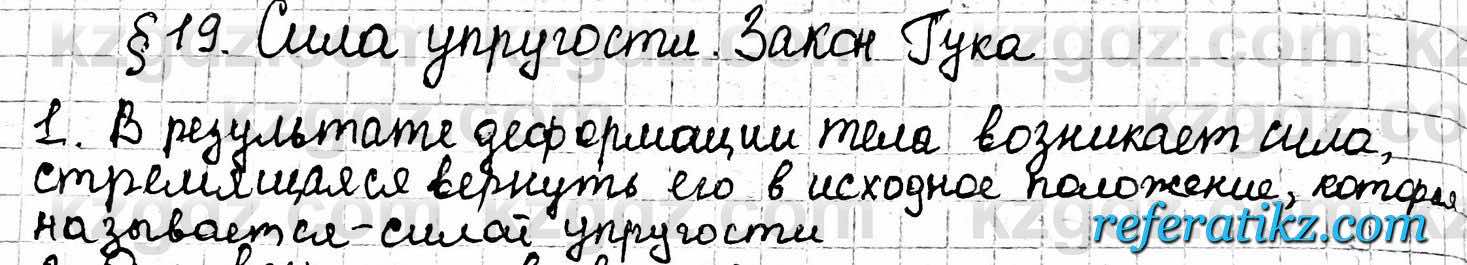 § 19. Сила упругости. Закон Гука
1. В результате деформации тела возникает сила,
стремящаяся вернуть его в исходное положение, которая
называется - силой упругости
referatikz.com